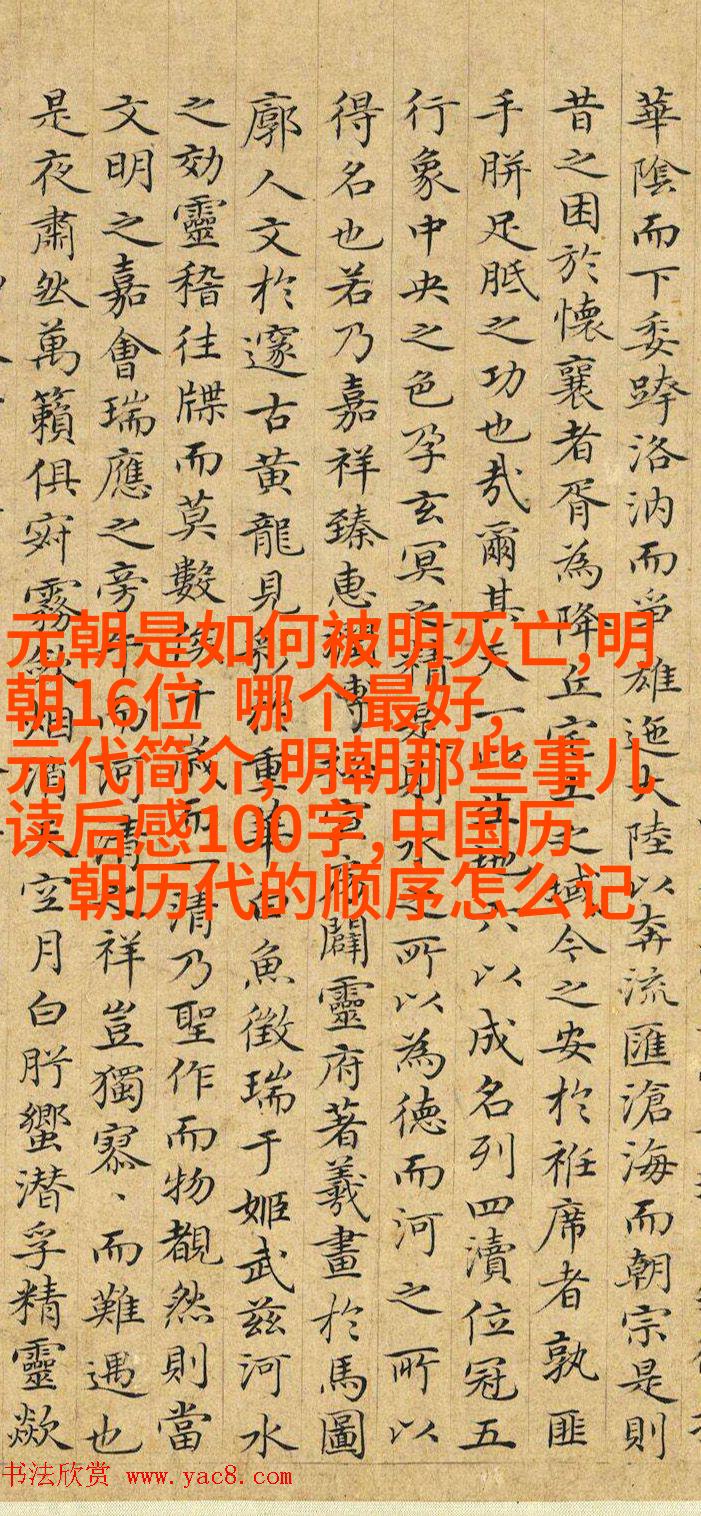 元朝是如何被明灭亡,明
朝16位 哪个最好,
元代简介,明朝那些事儿
读后感100字,中国历
朝历代的顺序怎么记
華陰而下委跨洛汭而雄迤大陸以奔流匯滄海而朝宗是則
昔之困於懷襄者胥為降丘宅土之域今之安於袵席者孰匪
手胼足胝之功也哉爾其天一地六以成名列四瀆位冠五
行象中央之色孕玄冥之精是則水之所以為德而河之所以
得名也若乃嘉祥臻惠闢靈府著羲畫於馬圖
廓人文於邃古黃龍見彩於重華白魚徵瑞于姬武茲河水
之効靈稽往牒而莫數後千歲而一清乃聖作而物覩然則當
文明之嘉會瑞應之旁午而河清之祥豈獨寡、而難遇也
是夜肅然萬籟俱寂霧斂烟消天空月白肸蠁潜孚精靈歘
书法欣赏 www.yac8.com